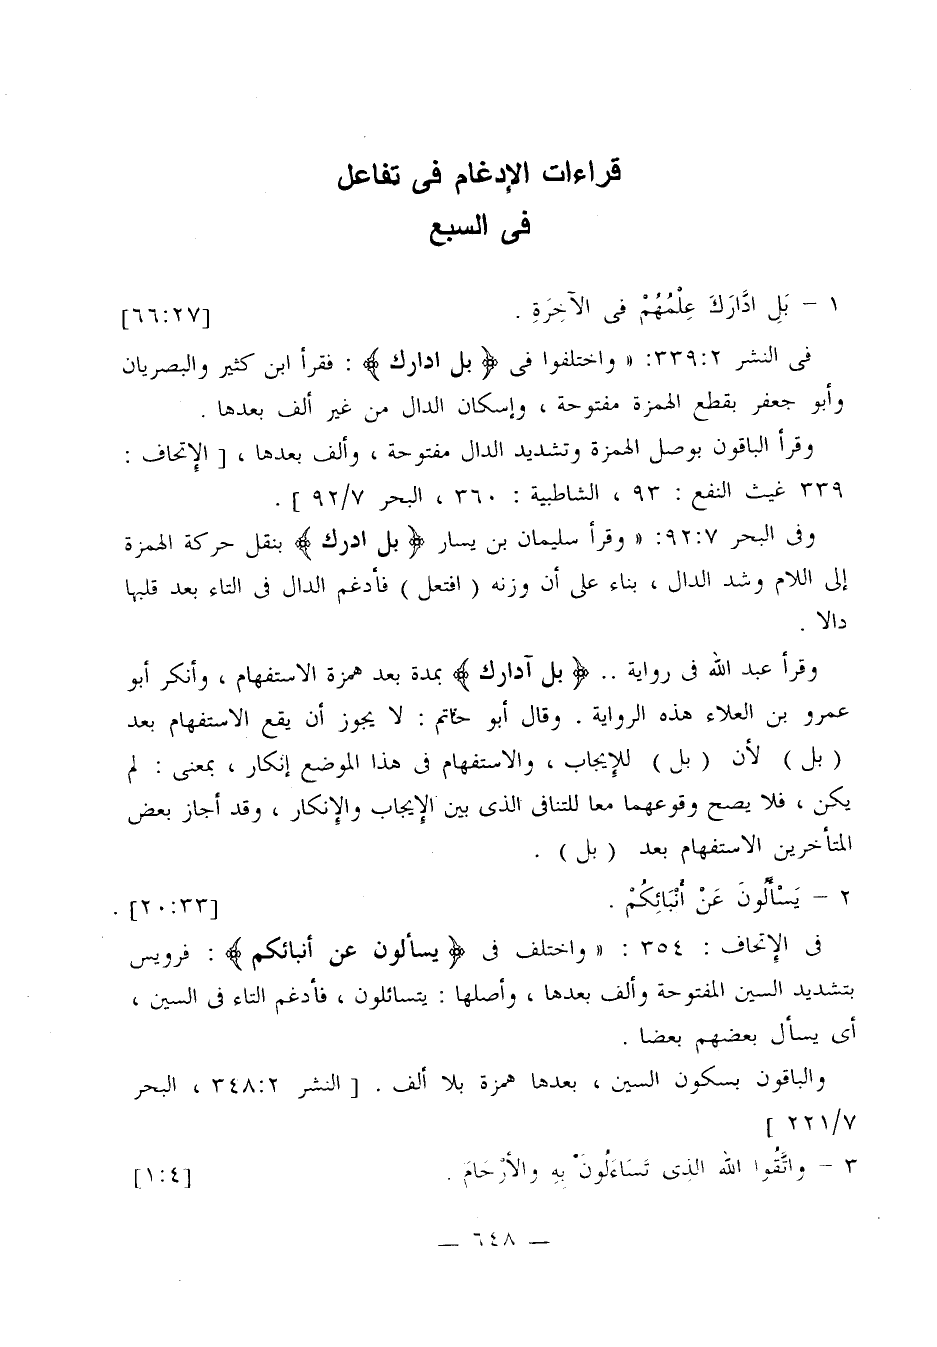 قراءات الإدغام فى تفاعل
فى السبع
١ – بَلِ ادَّارَكَ عِلْمُهُمْ فى الآخِرَةِ . [٦٦:٢٧]
فى النشر ٣٣٩:٢: « واختلفوا فى ﴿ بل ادارك ﴾ : فقرأ ابن كثير والبصريان
وأبو جعفر بقطع الهمزة مفتوحة ، وإسكان الدال من غير ألف بعدها .
وقرأ الباقون بوصل الهمزة وتشديد الدال مفتوحة ، وألف بعدها ، [ الإتحاف :
٣٣٩ غيث النفع : ٩٣ ، الشاطبية : ٣٦٠ ، البحر ٩٢/٧ ] .
وفى البحر ٩٢:٧: « وقرأ سليمان بن يسار ﴿ بل ادرك ﴾ بنقل حركة الهمزة
إلى اللام وشد الدال ، بناء على أن وزنه ( افتعل ) فأدغم الدال فى التاء بعد قلبها
دالا .
وقرأ عبد الله فى رواية .. ﴿ بل آدارك ﴾ بمدة بعد همزة الاستفهام ، وأنكر أبو
عمرو بن العلاء هذه الرواية . وقال أبو حاتم : لا يجوز أن يقع الاستفهام بعد
( بل ) لأن ( بل ) للإيجاب ، والاستفهام فى هذا الموضع إنكار ، بمعنى : لم
يكن ، فلا يصح وقوعهما معا للتنافى الذى بين الإيجاب والإنكار ، وقد أجاز بعض
المتأخرين الاستفهام بعد ( بل ) .
٢ – يَسْأَلُونَ عَنْ أَنْبَائِكُمْ . [٢٠:٣٣] .
فى الإتحاف : ٣٥٤ : « واختلف فى ﴿ يسألون عن أنبائكم ﴾ : فرويس
بتشديد السين المفتوحة وألف بعدها ، وأصلها : يتسائلون ، فأدغم التاء فى السين ،
أى يسأل بعضهم بعضا .
والباقون بسكون السين ، بعدها همزة بلا ألف . [ النشر ٣٤٨:٢ ، البحر
٢٢١/٧ ]
٣ – واتَّقُوا الله الذِى تَسَاءَلُونَ بِهِ والأرْحَامَ . [١:٤]
— ٦٤٨ —